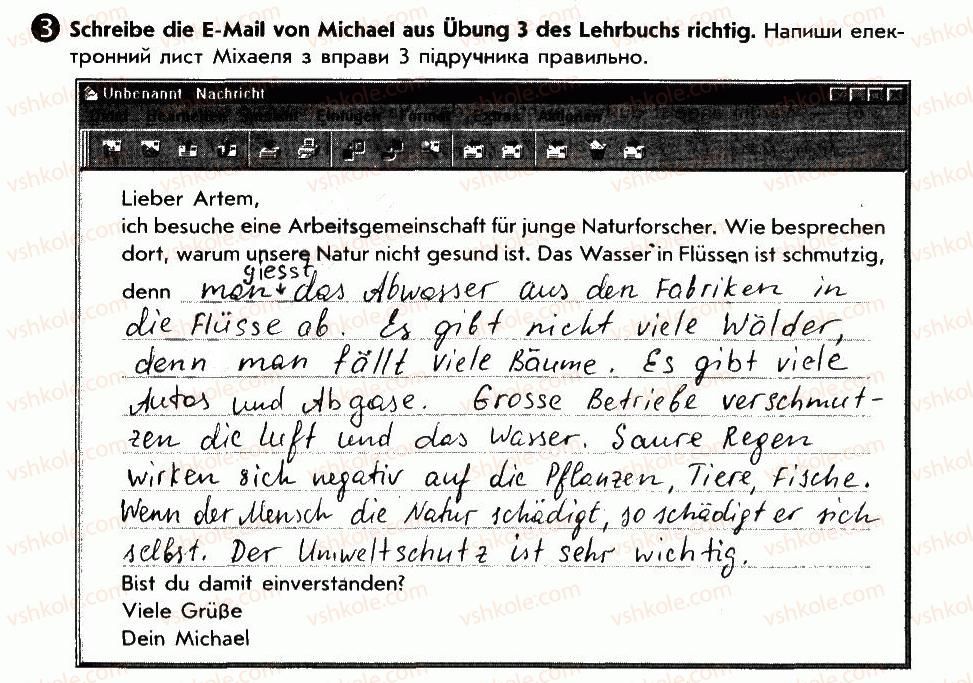 3 Schreibe die E-Mail von Michael aus Übung 3 des Lehrbuchs richtig. Напиши елек-
тронний лист Міхаеля з вправи 3 підручника правильно.
Unbenannt Nachricht
Bearbeiten Einfügen Format Extras Aktionen
Lieber Artem,
ich besuche eine Arbeitsgemeinschaft für junge Naturforscher. Wie besprechen
dort, warum unsere Natur nicht gesund ist. Das Wasser in Flüssen ist schmutzig,
giesst
denn man das Abwasser aus den Fabriken in
die Flüsse ab. Es gibt nicht viele Wälder,
denn man fällt viele Bäume. Es gibt viele
Autos und Abgase. Grosse Betriebe verschmut-
zen die Luft und das Wasser. Saure Regen
wirken sich negativ auf die Pflanzen, Tiere, Fische.
Wenn der Mensch die Natur schädigt, so schädigt er sich
selbst. Der Umweltschutz ist sehr wichtig.
Bist du damit einverstanden?
Viele Grüße
Dein Michael
vshkole.com